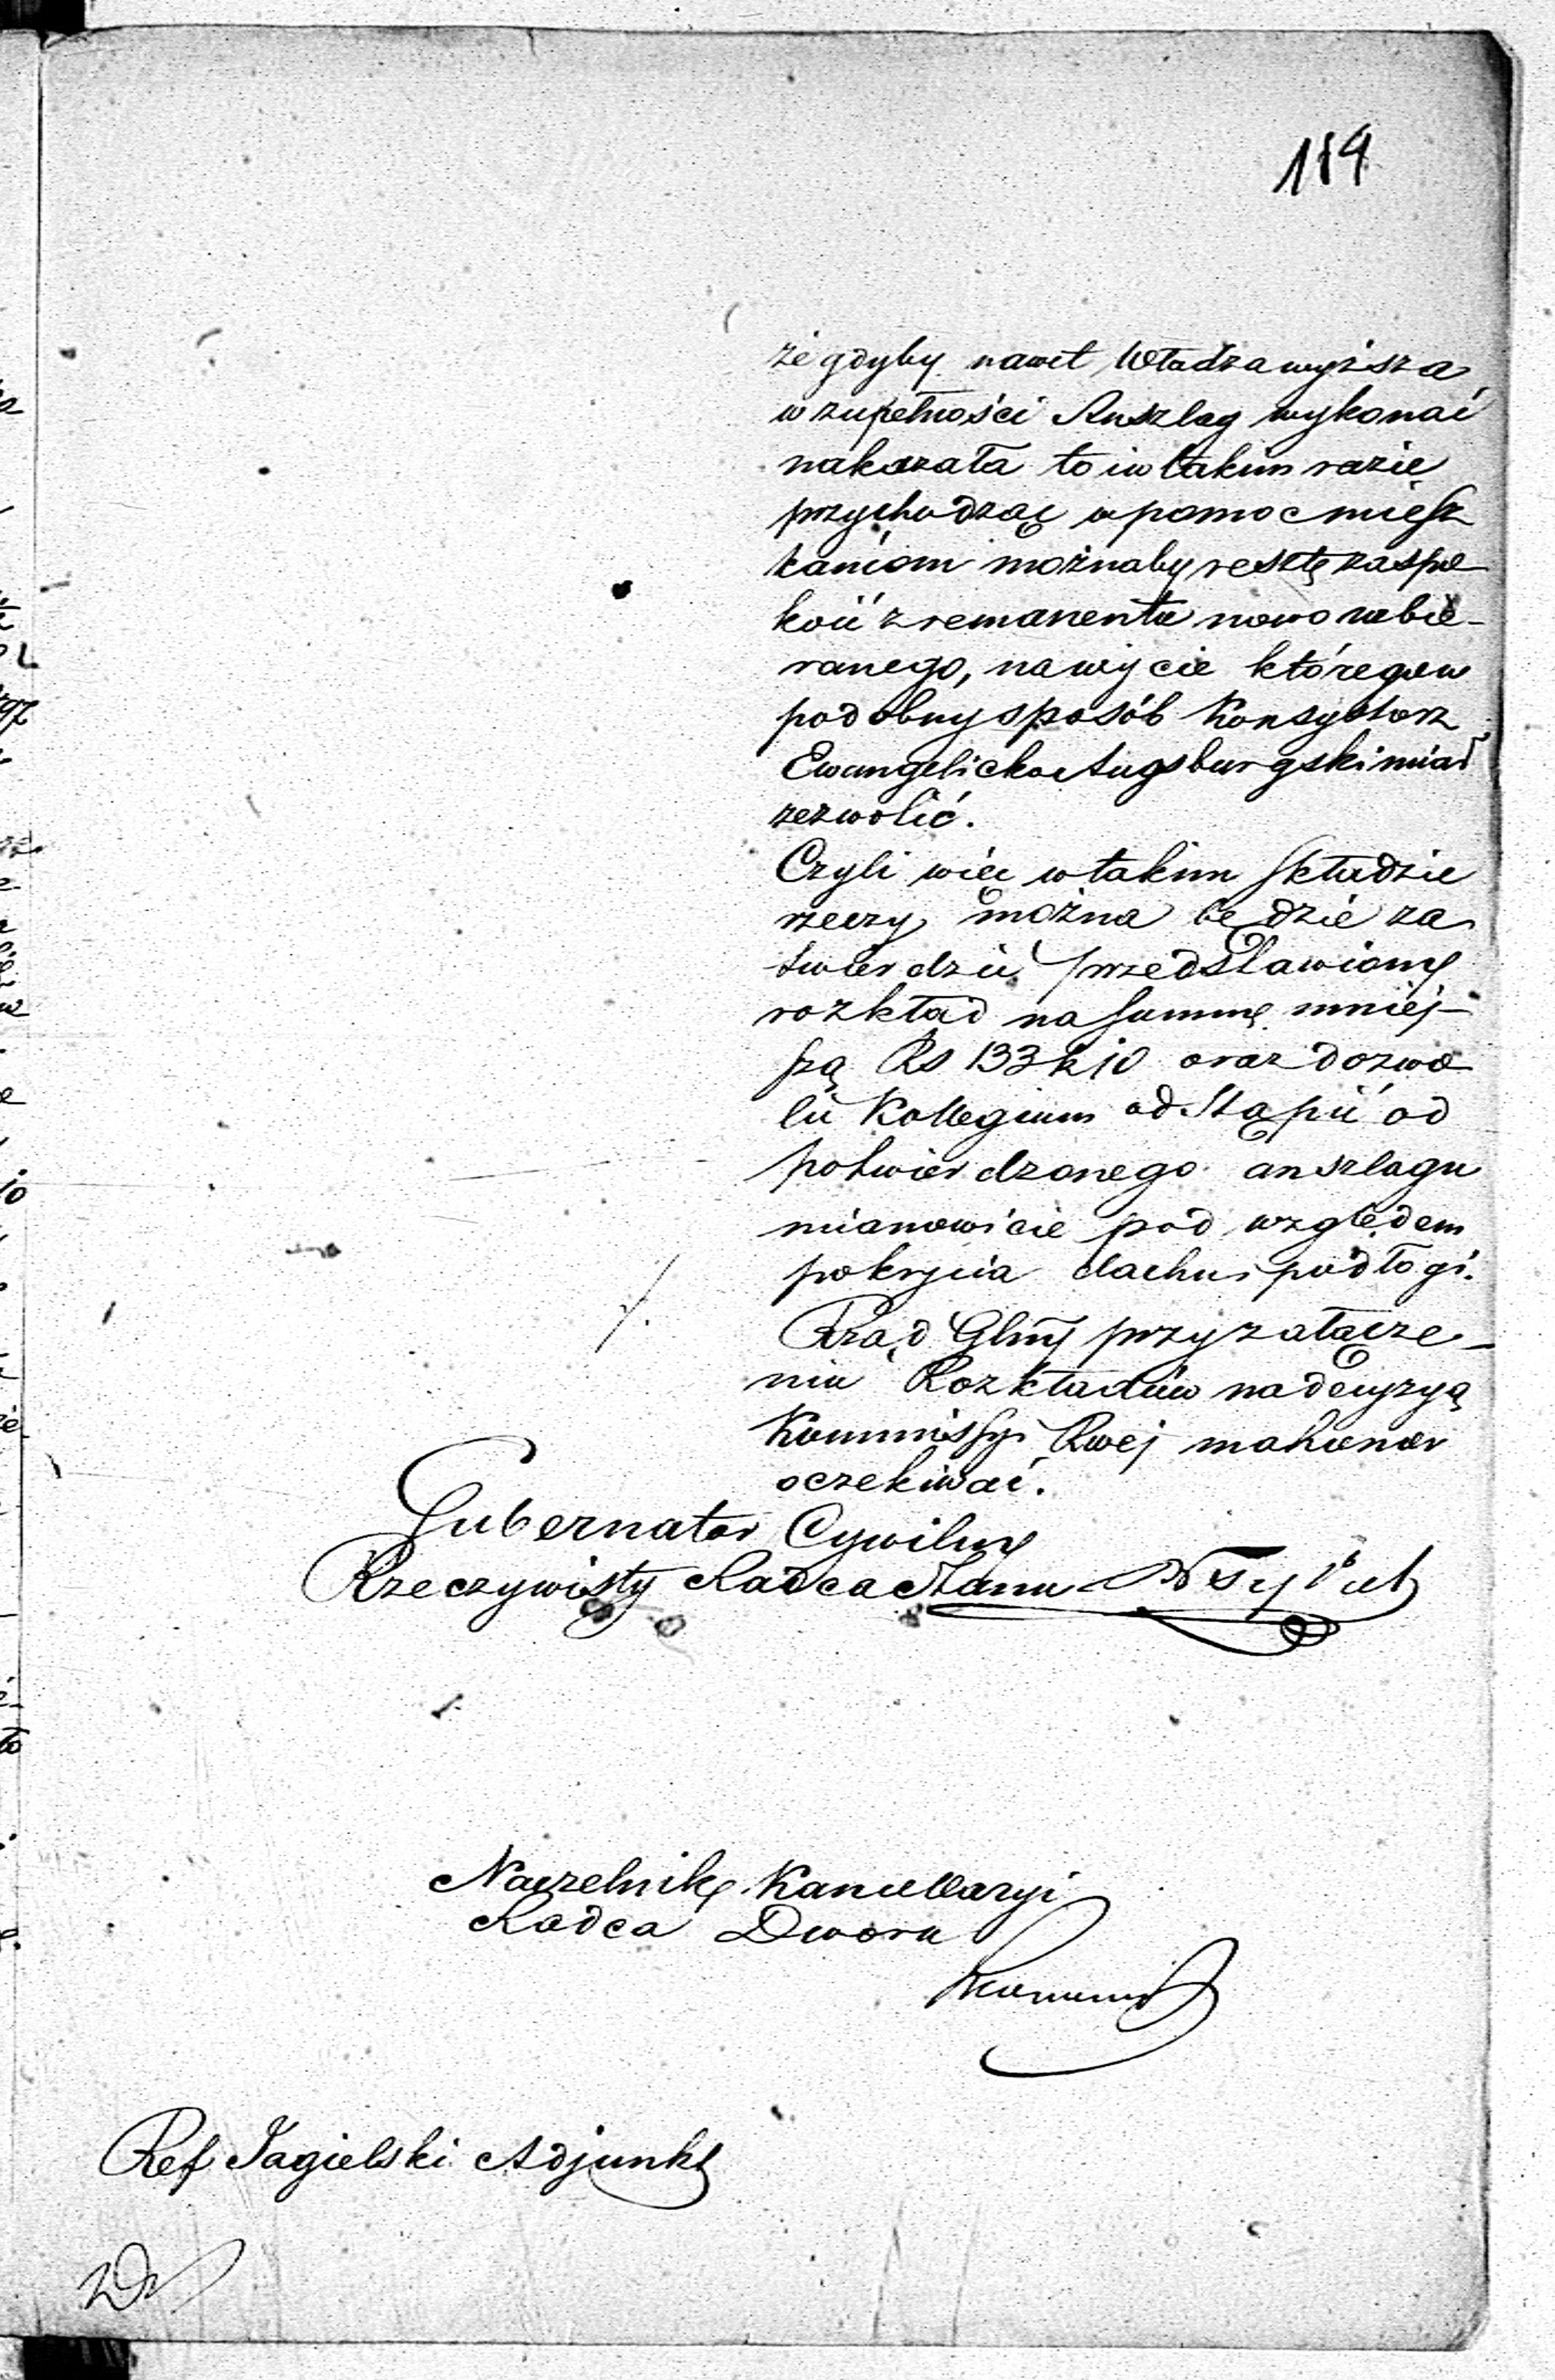 119
że gdyby nawet Władza wyższa
w zupełności Anszlag wykonać
nakazała to i w takim razie
przychodząc w pomoc miesz
kańcom możnaby resztę zaspo
koić z remanentu nowo uzbie-
ranego, na użycie którego w
podobny sposób Konsystorz
Ewangelicko Augsburgski miał
zezwolić.
Czyli więc w takim składzie
rzeczy można będzie za
twierdzić przedstawiony
rozkład na summę mniej-
szą Rs 133 k 10 oraz dozwo
lić Kollegium odstąpić od
potwierdzonego anszlagu
mianowicie pod względem
pokrycia dachu i podłogi.
Rząd Glny przy załącze-
niu Rozkładów na decyzyą
Kommissyi Rwej ma honor
oczekiwać.
Gubernator Cywilny
Rzeczywisty Radca Stanu
Naczelnik Kancellaryi
Radca Dworu
Ref Jagielski Adjunkt